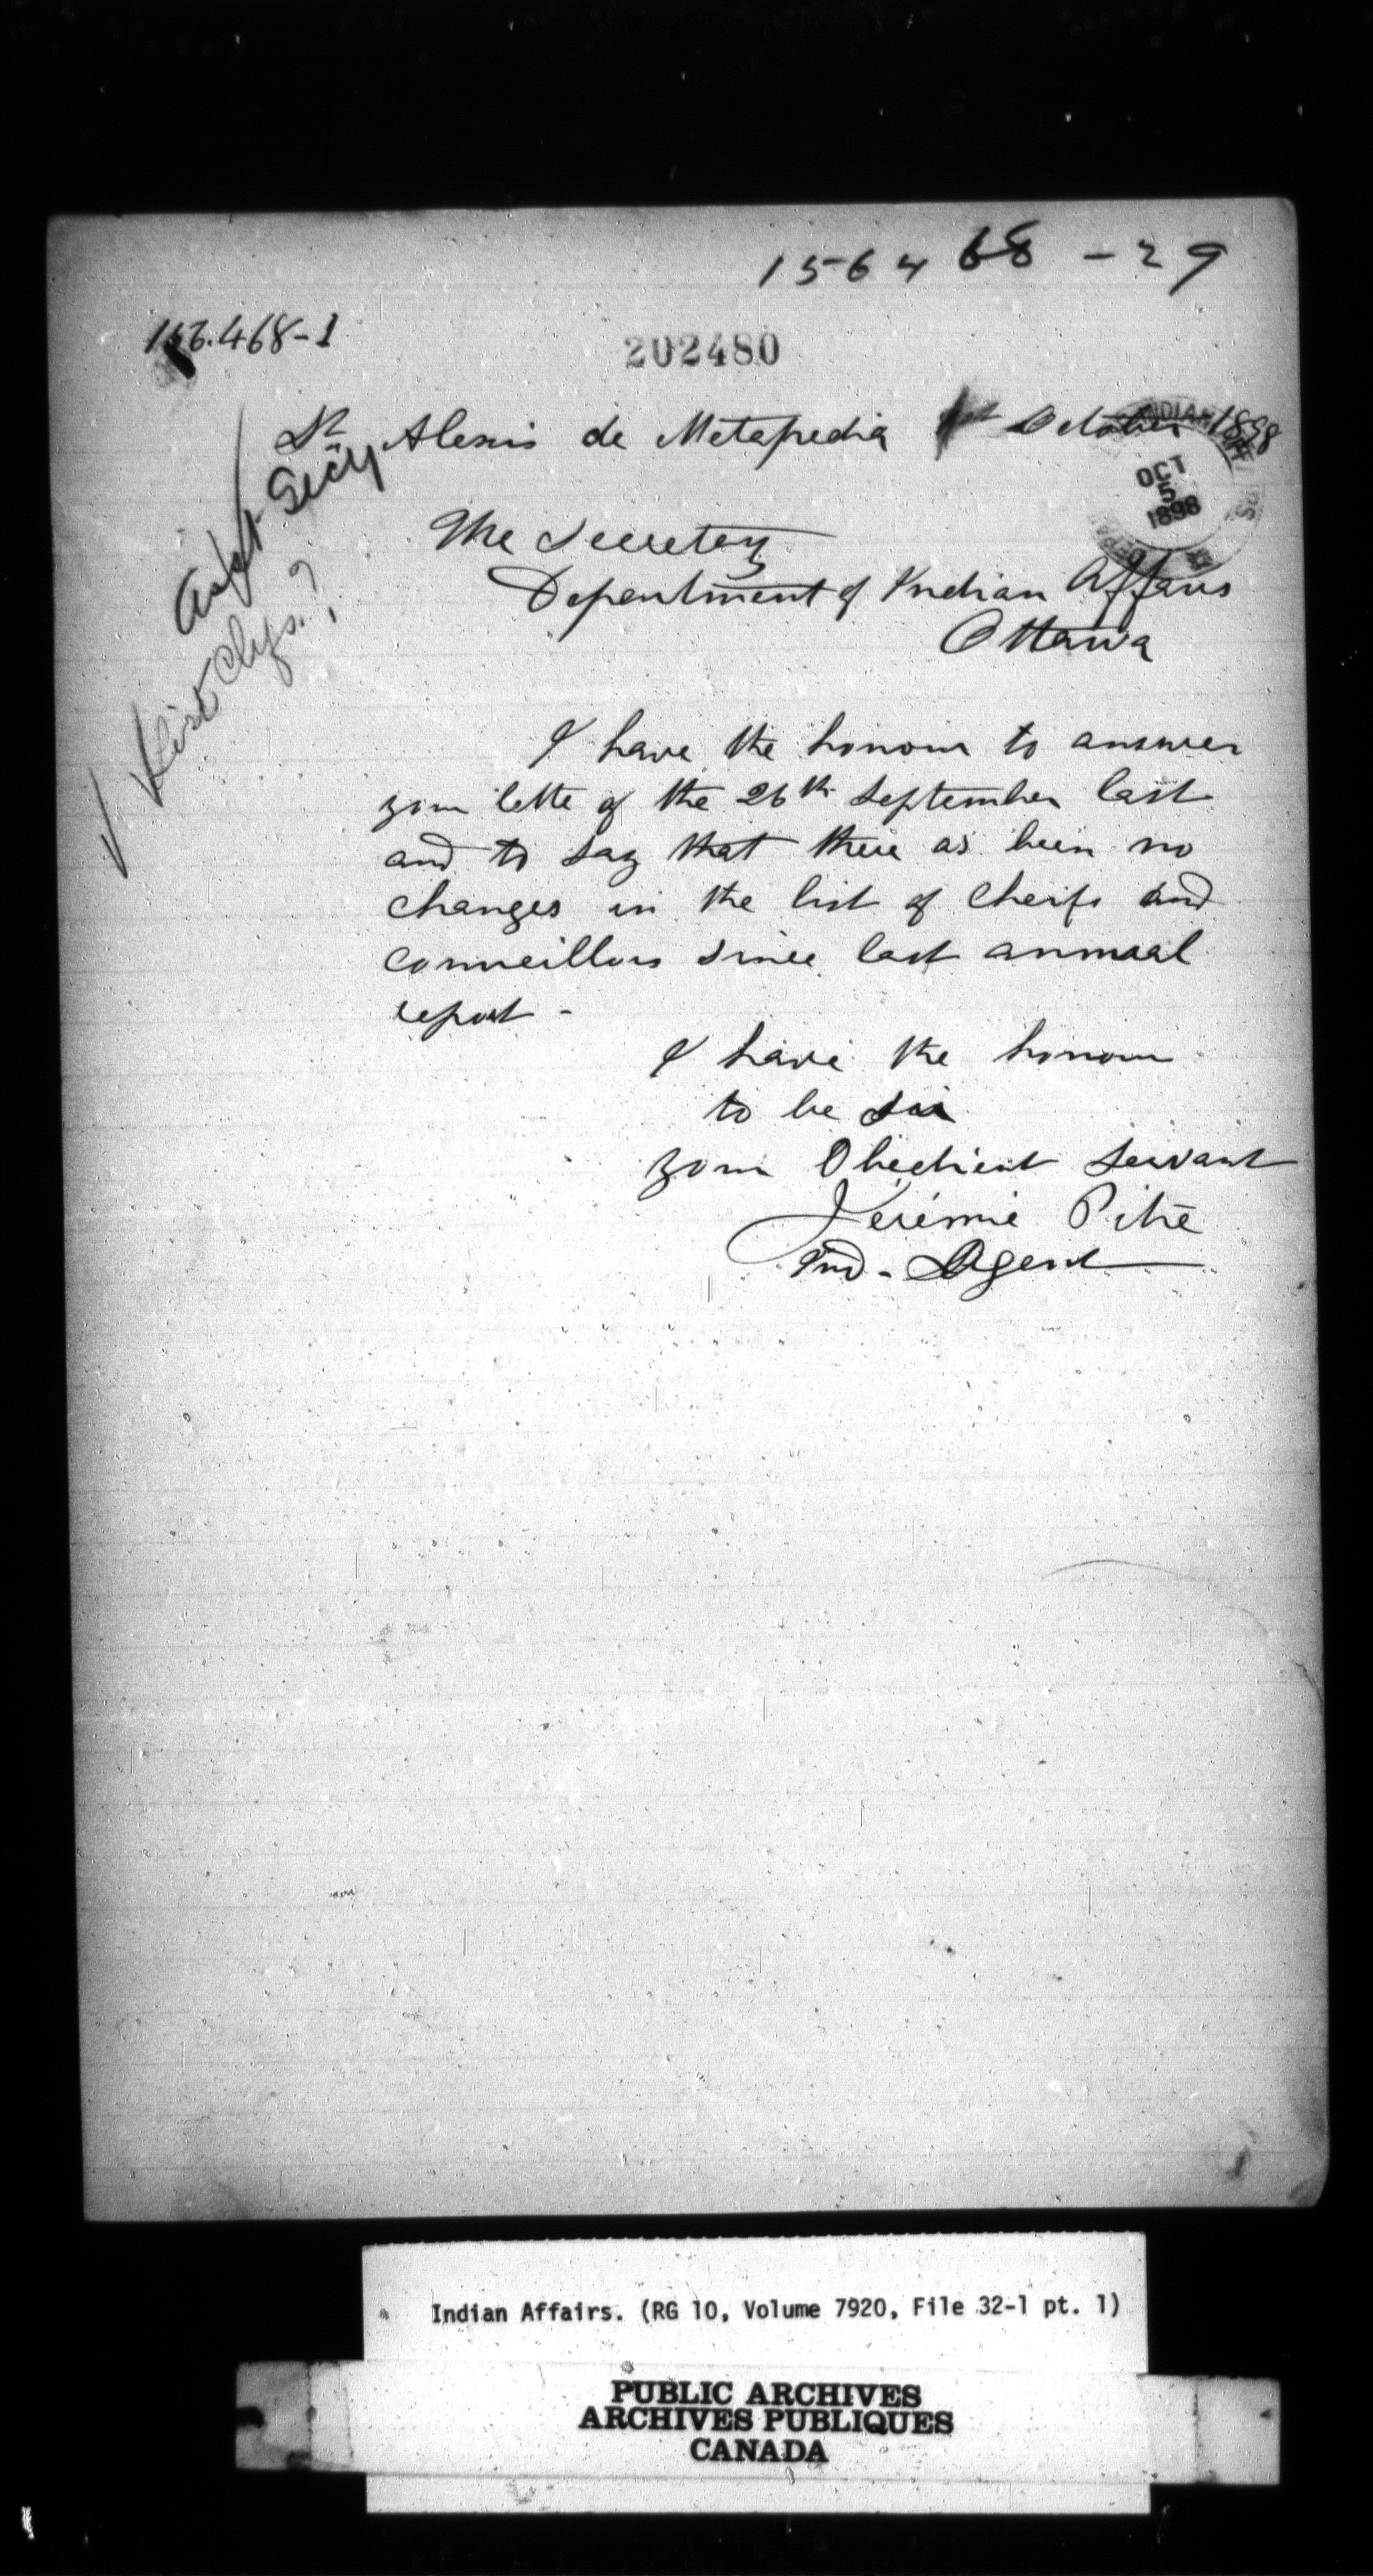 156468-29
156.468-1
202480
St Alexis de Metapedia 1st October 1898
OCT
5
1898
Asst Secy
The Secretery
Depentment of Indian Affairs
Ottawa
List Chfs.?
I have the honour to answer
your lette of the 26th September last
and to say that there as been no
changes in the list of Cheifs and
conneillors since last annual
report -
I have the honour
to be sir
your Obedient servant
Jérémie Pitre
Ind - Agent
Indian Affairs. (RG 10, Volume 7920, File 32-1 pt. 1)
PUBLIC ARCHIVES
ARCHIVES PUBLIQUES
CANADA